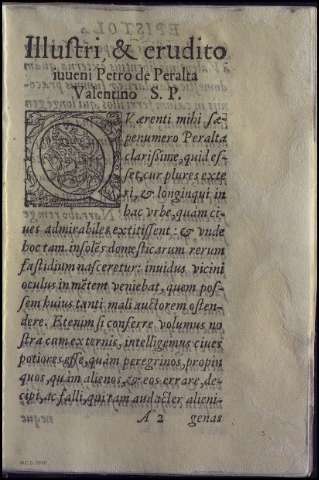 Illustri & erudito
iuueni Petro de Peralta
Valentino S. P.
QVærenti mihi sæ-
penumero Peralta
clarissime, quid es-
set, cur plures exte
ri, & longinqui in
hac vrbe, quam ci-
ues admirabiles extitissent: & vnde
hoc tam insolēs domesticarum rerum
fastidium nasceretur: inuidus vicini
oculus in mētem veniebat, quem pos-
sem huius tanti mali auctorem osten-
dere. Etenim si conferre volumus no
stra cum externis, intelligemus ciues
potiores esse, quàm peregrinos, propin
quos, quàm alienos, & eos errare, de-
cipi, ac falli, qui tam audacter alieni-
A 2 genas